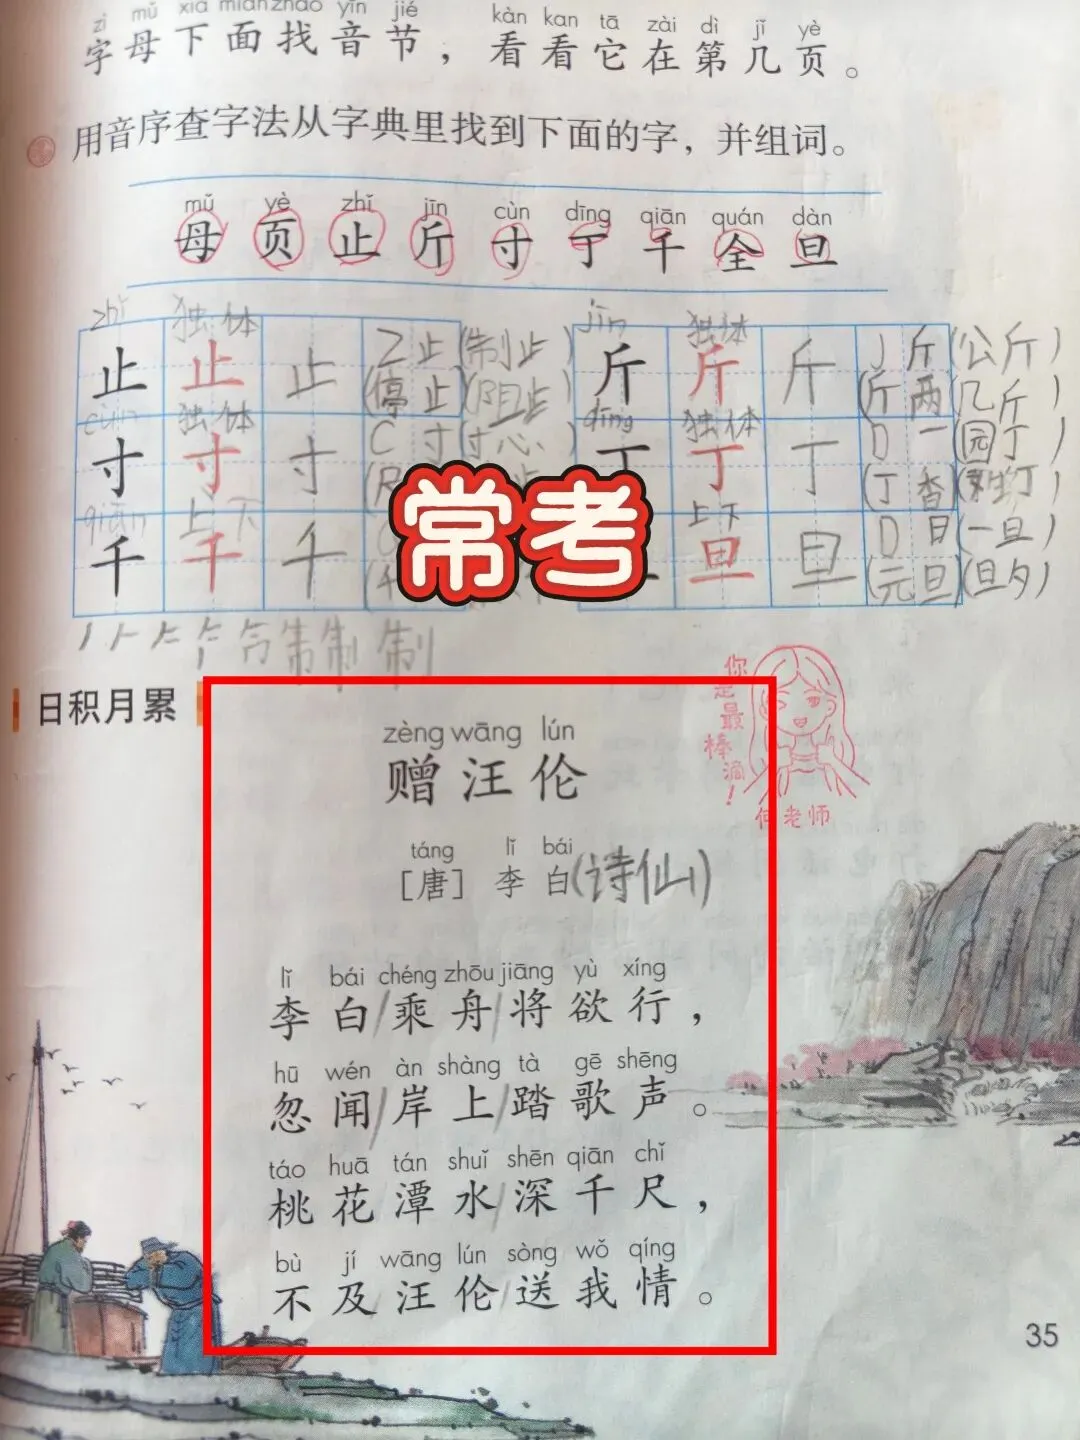 zì mǔ xià miàn zhǎo yīn jié kàn kan tā zài dì jǐ yè
字母下面找音节，看看它在第几页。
用音序查字法从字典里找到下面的字，并组词。
mǔ yè zhǐ jīn cùn dīng qiān quán dàn
母 页 止 斤 寸 丁 千 全 旦
zhǐ 独体 jīn 独体
止 止 止 Z 止 (制止) 斤 斤 斤 J 斤 (公斤)
(停止) (阻止) (斤两) (几斤)
cùn 独体 dīng 独体
寸 寸 寸 C 寸 (寸心) 丁 丁 丁 D 一 (园丁)
(丁香)
常考
qiān 上下 上下
千 千 千 旦 旦 D 日 (一旦)
(元旦) (旦夕)
制 制
日积月累
你是最棒滴！
何老师
zèng wāng lún
赠汪伦
táng lǐ bái
[唐] 李白(诗仙)
lǐ bái chéng zhōu jiāng yù xíng
李白/乘舟/将欲行，
hū wén àn shàng tà gē shēng
忽闻/岸上/踏歌声。
táo huā tán shuǐ shēn qiān chǐ
桃花潭水/深千尺，
bù jí wāng lún sòng wǒ qíng
不及汪伦/送我情。
35